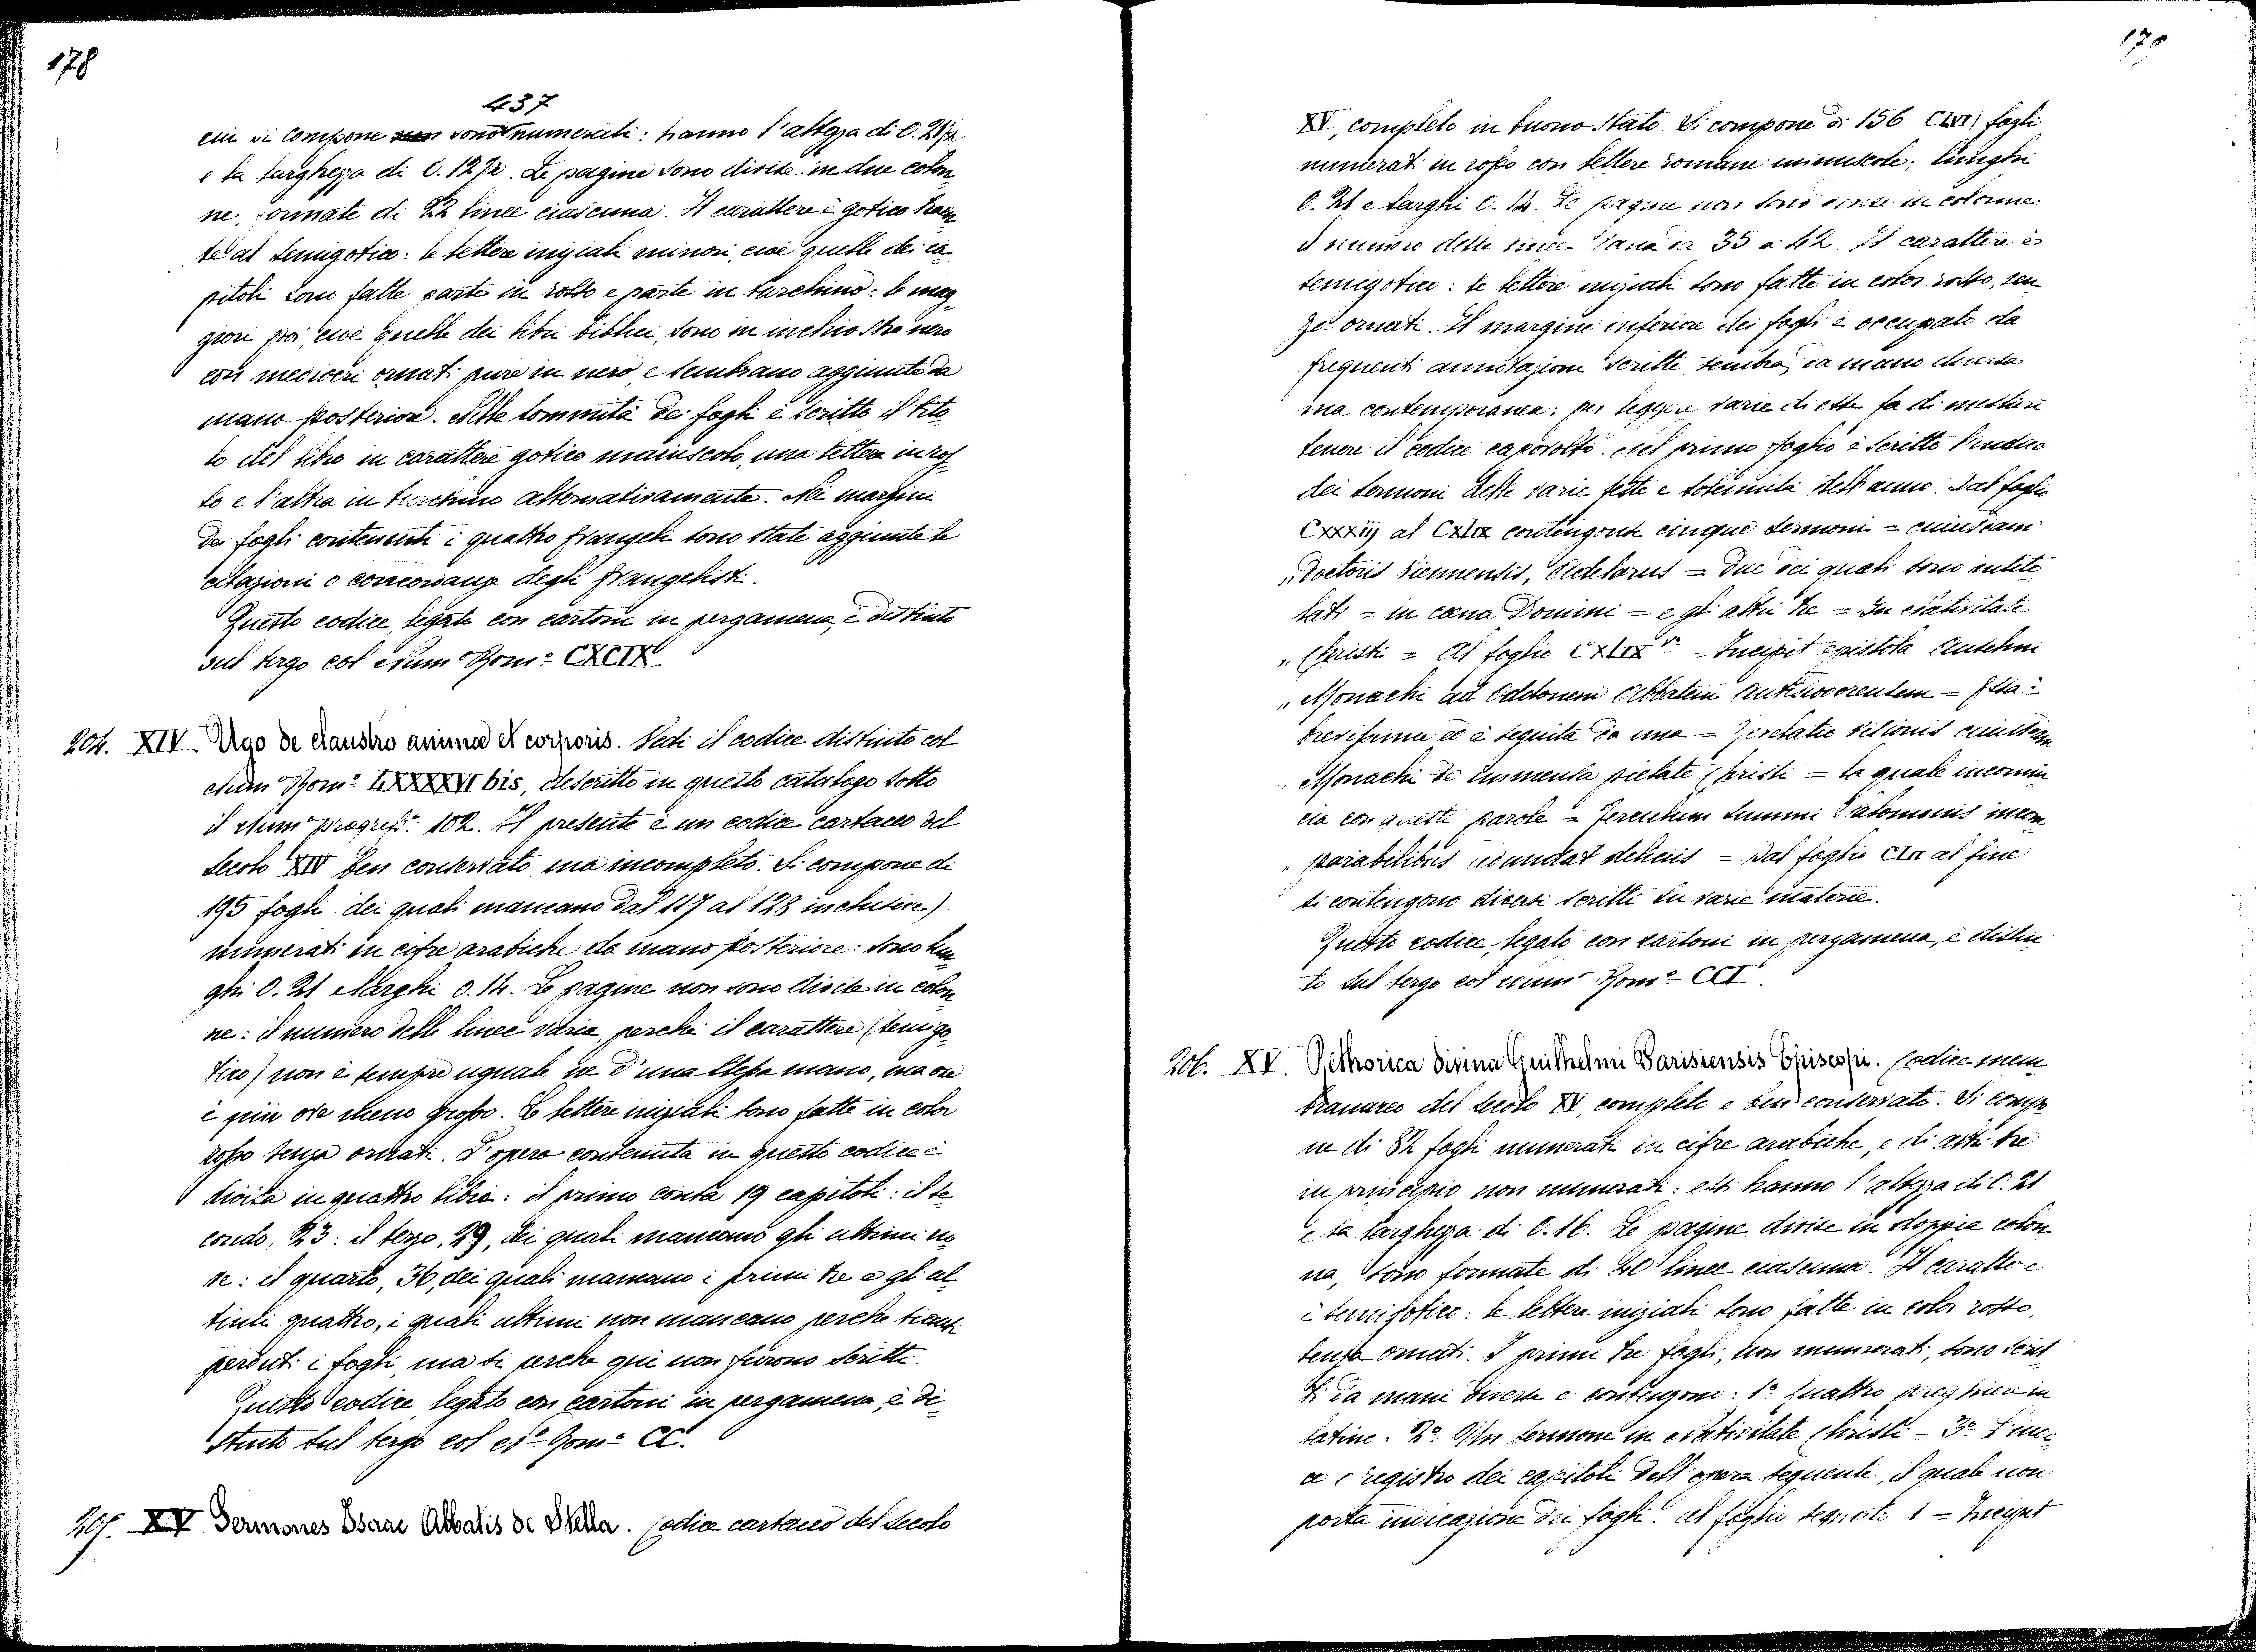 178
437
cui si compone sono numerati: hanno l'altezza di C. 21 1/2
e la larghezza di C. 12 1/2. Le pagine sono divise in due colon
ne, formate di 52 linee ciascuna. Il carattere è gotico traen
te al semigotico: le lettere iniziali minori, cioè quelle dei ca
pitoli sono fatte parte in rosso e parte in turchino: le mag
giori poi, cioè quelle dei libri biblici, sono in inchiostro nero
con mediocri ornati pure in nero e sembrano aggiunte da
mano posteriore. Nella sommità dei fogli è scritto il tito
lo del libro in carattere gotico maiuscolo, una lettera in ros
so e l'altra in turchino alternativamente. Nei margini
dei fogli contenenti i quattro Evangeli sono state aggiunte le
citazioni o concordanze degli Evangelisti.
Questo codice, legato con cartoni in pergamena, è distinto
sul tergo col Num° Rom° CXCIX.
204. XIV. Ugo de claustro animae et corporis. Vedi il codice distinto col
Num° Rom° LXXXXVI bis, descritto in questo catalogo sotto
il Num° progress° 102. Il presente è un codice cartaceo del
secolo XIV ben conservato, ma incompleto. Si compone di
195 fogli (dei quali mancano dal 117 al 128 inclusive)
numerati in cifre arabiche da mano posteriore: sono lun
ghi C. 21 e larghi C. 14. Le pagine non sono divise in colon
ne: il numero delle linee varia, perchè il carattere (semigo
tico) non è sempre uguale ne d'una stessa mano, ma ora
è più ora meno grosso. Le lettere iniziali sono fatte in color
rosso senza ornati. L'opera contenuta in questo codice è
divisa in quattro libri: il primo conta 19 capitoli: il se
condo, 23: il terzo, 29, dei quali mancano gli ultimi no
ve: il quarto, 36, dei quali mancano i primi tre e gli ul
timi quattro, i quali ultimi non mancano perchè siansi
perduti i fogli, ma sì perchè qui non furono scritti.
Questo codice, legato con cartoni in pergamena, è di
stinto sul tergo col N° Rom° CC.
205. XV Sermones Isaac Abbatis de Stella. Codice cartaceo del secolo
179
XV, completo in buono stato. Si compone di 156 (CLVI) fogli
numerati in rosso con lettere romane minuscole; lunghi
C. 21 e larghi C. 14. Le pagine non sono divise in colonne:
il numero delle linee varia da 35 a 42. Il carattere è
semigotico: le lettere iniziali sono fatte in color rosso, sen
za ornati. Il margine inferiore dei fogli è occupato da
frequenti annotazioni scritte, sembra, da mano diversa
ma contemporanea: per leggere varie di esse fa di mestieri
tenere il codice capovolto. Nel primo foglio è scritto l'indice
dei sermoni delle varie feste e solennità dell'anno. Dal foglio
Cxxxiij al Cxlix contengonsi cinque sermoni = cuiusdam
„Doctoris Viennensis, = due dei quali sono intito
lati = in cœna Domini = e gli altri tre = In nativitate
„Christi = Al foglio CXLIX v° = Incipit epistola Anselmi
„Monachi ad Oddonem Abbatem = Essa è
brevissima ed è seguita da una = Revelatio visionis cuiusdam
„Monachi de immensa pietate Christi = la quale incomin
cia con queste parole = Ferculum summi Salomonis incom
„parabilibus redundat deliciis = Dal foglio CLII al fine
si contengono diversi scritti su varie materie.
Questo codice, legato con cartoni in pergamena, è distin
to sul tergo col num° Rom° CCI.
206. XV. Rethorica divina Guilhelmi Parisiensis Episcopi. Codice mem
branaceo del secolo XV, completo e ben conservato. Si compo
ne di 82 fogli numerati in cifre arabiche, e di altri tre
in principio non numerati: essi hanno l'altezza di C. 21
e la larghezza di C. 16. Le pagine, divise in doppia colon
na, sono formate di 40 linee ciascuna. Il carattere
è semigotico: le lettere iniziali sono fatte in color rosso,
senza ornati. I primi tre fogli, non numerati, sono scrit
ti da mani diverse e contengono: 1° Quattro preghiere in
latino. 2° Un sermone in Nativitate Christi = 3° L'indi
ce e registro dei capitoli dell'opera seguente, il quale non
porta indicazione dei fogli. Al foglio segnato 1 = Incipit